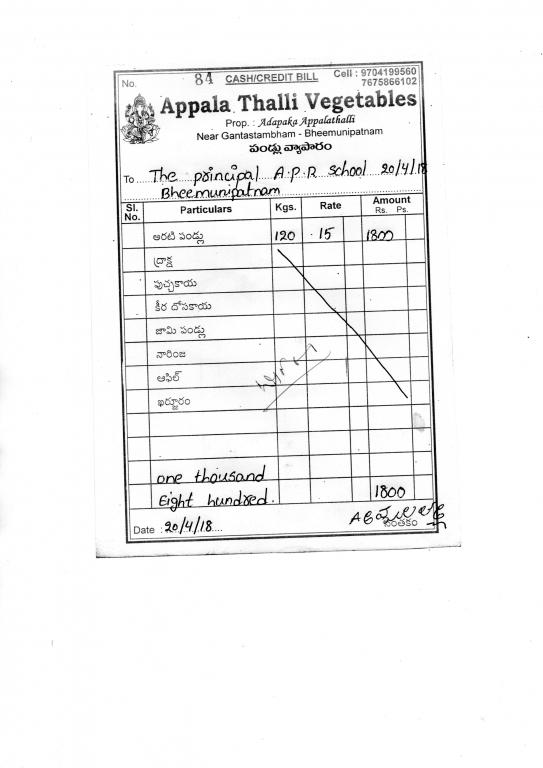 No. 84 CASH/CREDIT BILL Cell : 9704199560
7675866102
Appala Thalli Vegetables
Prop. : Adapaka Appalathalli
Near Gantastambham - Bheemunipatnam
పండ్లు వ్యాపారం
To The principal A.P.R School 20/4/18
Bheemunipatnam
Sl. No. Particulars Kgs. Rate Amount Rs. Ps.
అరటి పండ్లు 120 15 1800
ద్రాక్ష
పుచ్చకాయ
కీర దోసకాయ
జామి పండ్లు
నారింజ
ఆఫిల్
ఖర్జూరం
one thousand
Eight hundred. 1800
Date : 20/4/18
సంతకం